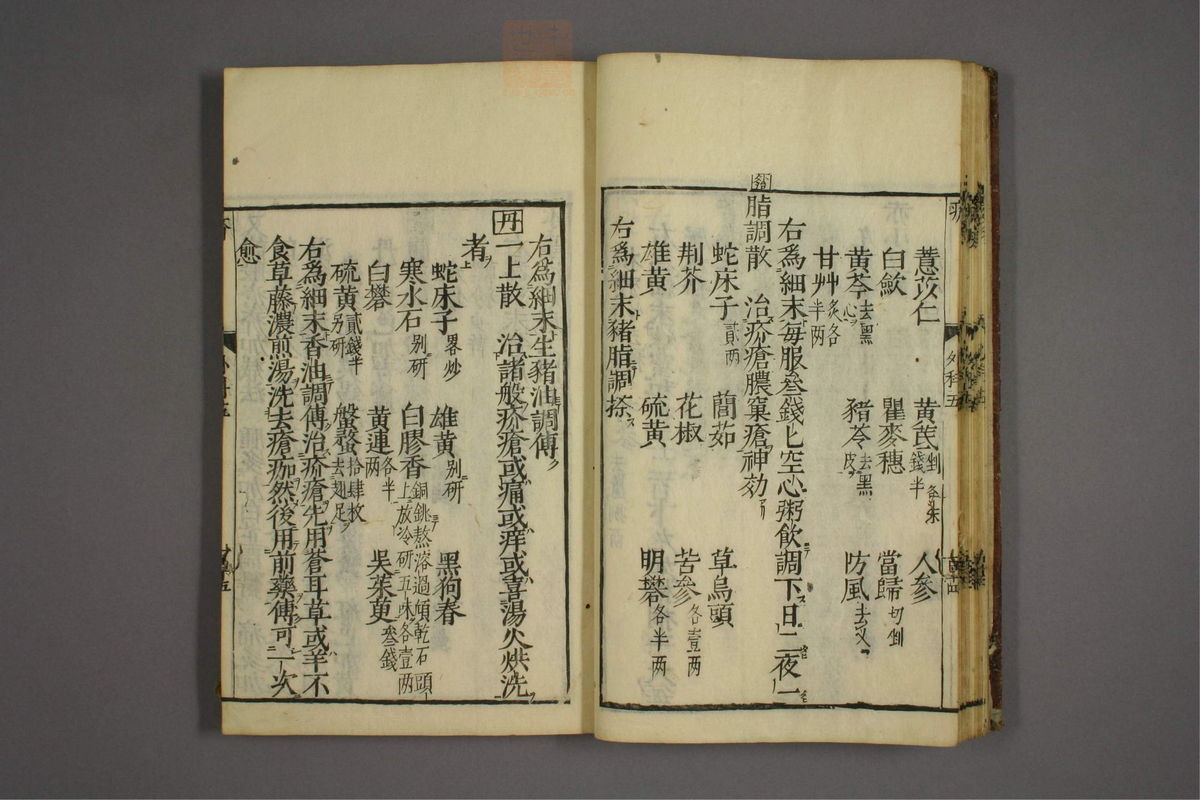 薏苡仁 黄芪剉各朱錢半 人參
白歛 瞿麥穗 當歸切剉
黄芩去黑心 豬苓去黑皮 防風去叉
甘艸炙各半两
右爲細末每服叄錢匕空心粥飲調下日二夜一
脂調散 治疥瘡膿窠瘡神効
蛇床子貳两 䕡茹 草烏頭
荆芥 花椒 苦參各壹两
雄黄 硫黄 明礬各半两
右爲細末豬脂調搽
右爲細末生豬油調傅
丹一上散 治諸般疥瘡或痛或痒或喜湯火烘洗
者
蛇床子畧炒 雄黄别研 黑狗脊
寒水石别研 白膠香銅銚熬溶過傾乾石頭上放冷研五味各壹两
白礬 黄連各半两 吳茱萸叄錢
硫黄貳錢半别研 盤蝥拾肆枚去翅足
右爲細末香油調傅治疥瘡先用蒼耳草或羊不
食草藤濃煎湯洗去瘡痂然後用前藥傅可一次
愈